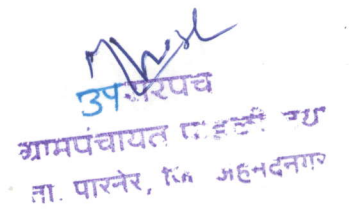 उपसरपंच
ग्रामपंचायत
ता. पारनेर, जि. अहमदनगर